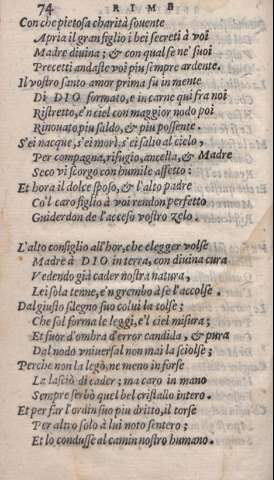 74 RIME
Con che pietosa charità souente
Apria il gran figlio i bei secreti à voi
Madre diuina; & con qual fe ne' suoi
Precetti andaste voi piu sempre ardente.
Il vostro santo amor prima fu in mente
Di DIO formato, e in carne qui fra noi
Ristretto, e'n ciel con maggior nodo poi
Rinouato piu saldo, & piu possente.
S'ei nacque, s'ei morì, s'ei salio al cielo,
Per compagna, rifugio, ancella, & Madre
Seco vi scorgo con humile affetto:
Et hora il dolce sposo, & l'alto padre
Co'l caro figlio à voi rendon perfetto
Guiderdon de l'acceso vostro zelo.
L'alto consiglio all'hor, che elegger volse
Madre à DIO in terra, con diuina cura
Vedendo già cader nostra natura,
Lei sola tenne, e'n grembo à se l'accolse.
Dal giusto sdegno suo colui la tolse;
Che sol forma le leggi, e'l ciel misura;
Et fuor d'ombra d'error candida, & pura
Dal nodo vniuersal non mai la sciolse;
Perche non la legò, ne meno in forse
La lasciò di cader; ma caro in mano
Sempre serbò quel bel cristallo intero.
Et per far l'ordin suo piu dritto, il torse
Per altro solo à lui noto sentero;
Et lo condusse al camin nostro humano.